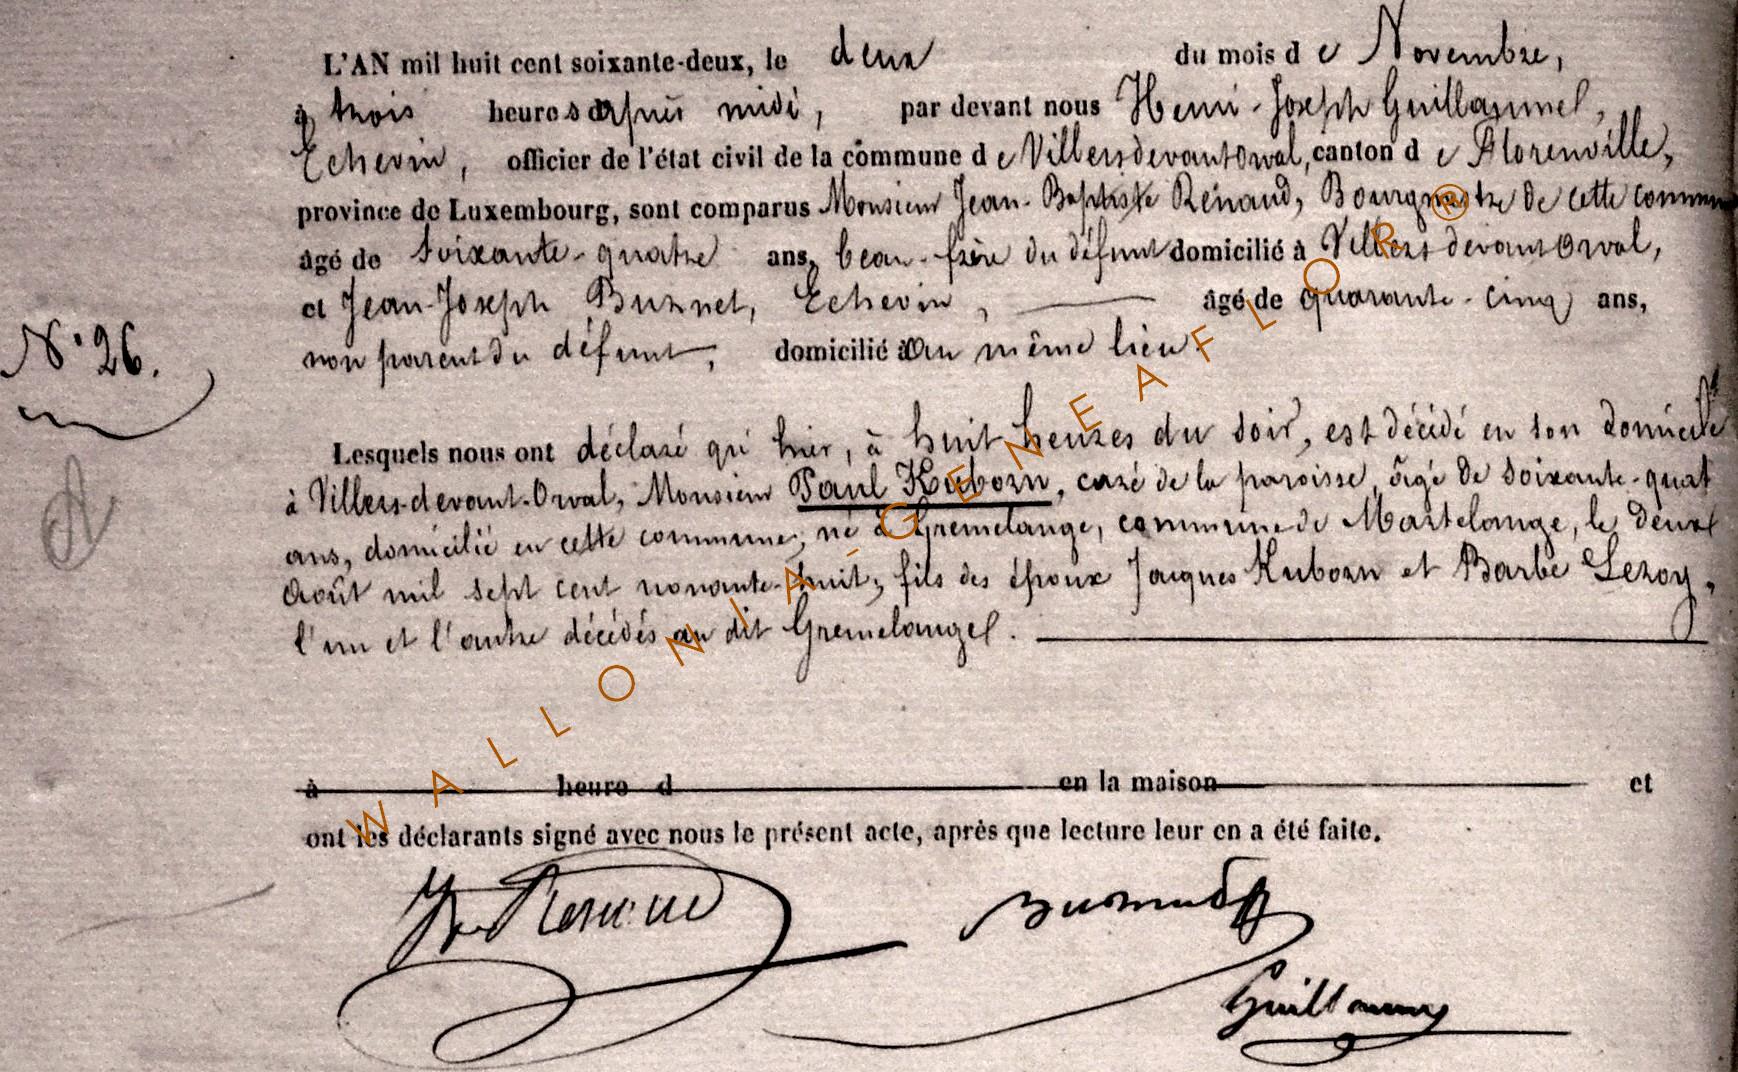 L'AN mil huit cent soixante-deux, le deux du mois de Novembre,
à trois heures après midi, par devant nous Henri-Joseph Guillaumel,
Echevin, officier de l'état civil de la commune de Villersdevant Orval, canton de Florenville,
province de Luxembourg, sont comparus Monsieur Jean-Baptiste Renaud, Bourgmestre de cette commune
âgé de soixante-quatre ans, beau-frère du défunt domicilié à Villers devant Orval,
et Jean-Joseph Busnel, Echevin, âgé de quarante-cinq ans,
N° 26.
non parent du défunt, domicilié au même lieu.
Lesquels nous ont déclaré qu'hier, à huit heures du soir, est décédé en son domicile
à Villers-devant-Orval, Monsieur Paul Kuborn, curé de la paroisse, âgé de soixante-quat
ans, domicilié en cette commune, né à Gremelange, commune de Martelange, le deux
Août mil sept cent nonante-huit, fils des époux Jacques Kuborn et Barbe Leroy,
l'un et l'autre décédés au dit Gremelange.
à heure d en la maison et
ont les déclarants signé avec nous le présent acte, après que lecture leur en a été faite.
Guillaume
WALLONIA-GENEAFLOR®